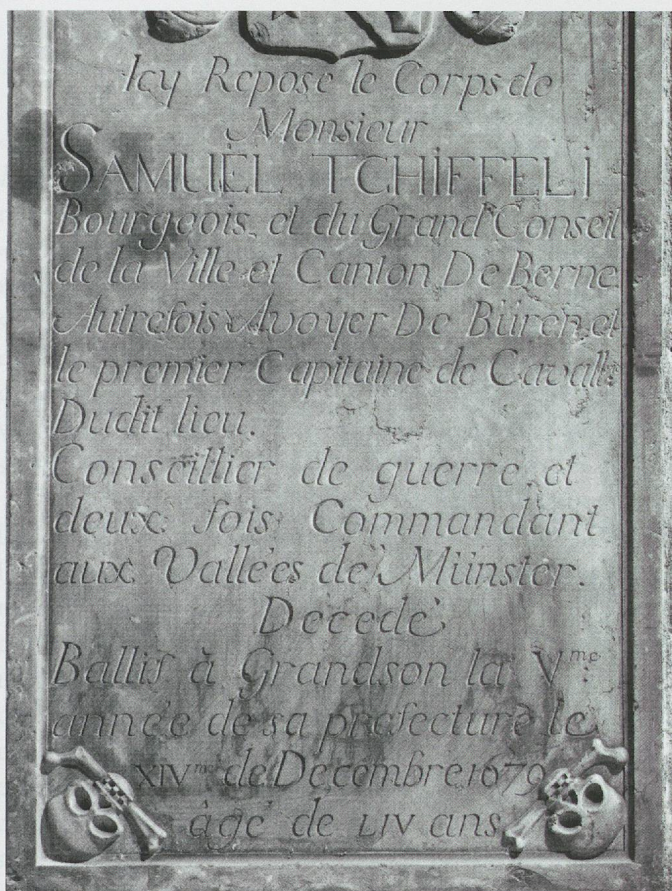 Icy Repose le Corps de
Monsieur
SAMUEL TCHIFFELI
Bourgeois et du Grand Conseil
de la Ville et Canton De Berne
Autrefois Avoyer De Büren et
le premier Capitaine de Cavall:
Dudit lieu.
Conseillier de guerre et
deux fois Commandant
aux Vallées de Münster.
Decedé
Ballif à Grandson la V.me
année de sa prefecture le
XIV.me de Decembre 1679
âgé de LIV ans